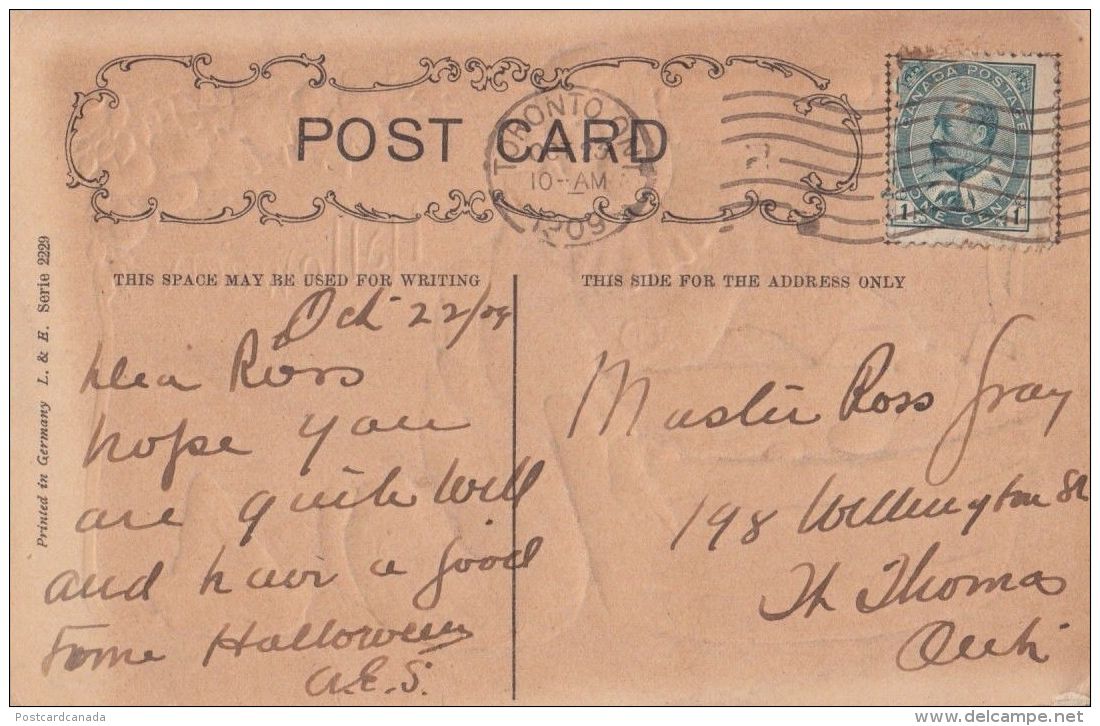 POST CARD
TORONTO, ONT.
10-AM
1909
CANADA POSTAGE
1 ONE CENT 1
THIS SPACE MAY BE USED FOR WRITING
THIS SIDE FOR THE ADDRESS ONLY
Printed in Germany L. & E. Serie 2229
Oct 22/09
Dear Ross
hope you
are quite well
and have a good
time Halloween
A.E.S.
Master Ross Gray
198 Wellington St
St Thomas
Ont
Postcardcanada
delcampe.net